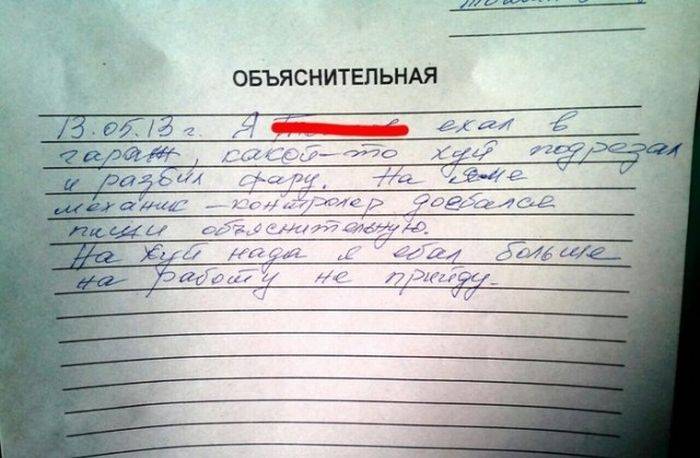 ОБЪЯСНИТЕЛЬНАЯ
13.05.13 г. Я ехал в
гараж, какой-то хуй подрезал
и разбил фару. На яме
механик-контролер доебался
пиши объяснительную.
На хуй нада я ебал больше
на работу не прийду.